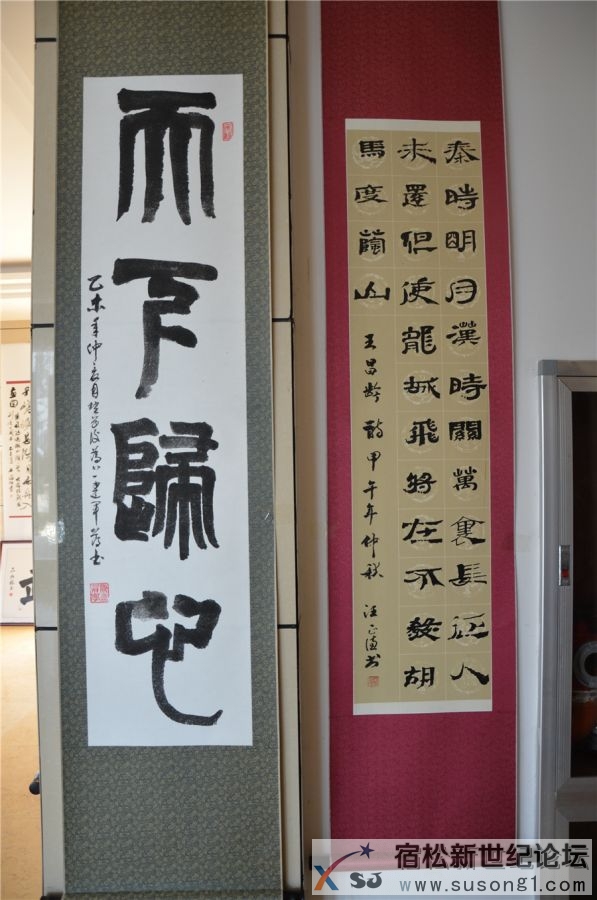 天下歸心
乙未年仲夏月 為八一建軍節書
秦時明月漢時關萬裏長征人
未還但使龍城飛將在不教胡
馬度陰山 王昌齡詩甲午年仲秋 汪 書
宿松新世纪论坛
XSJ www.susong1.com